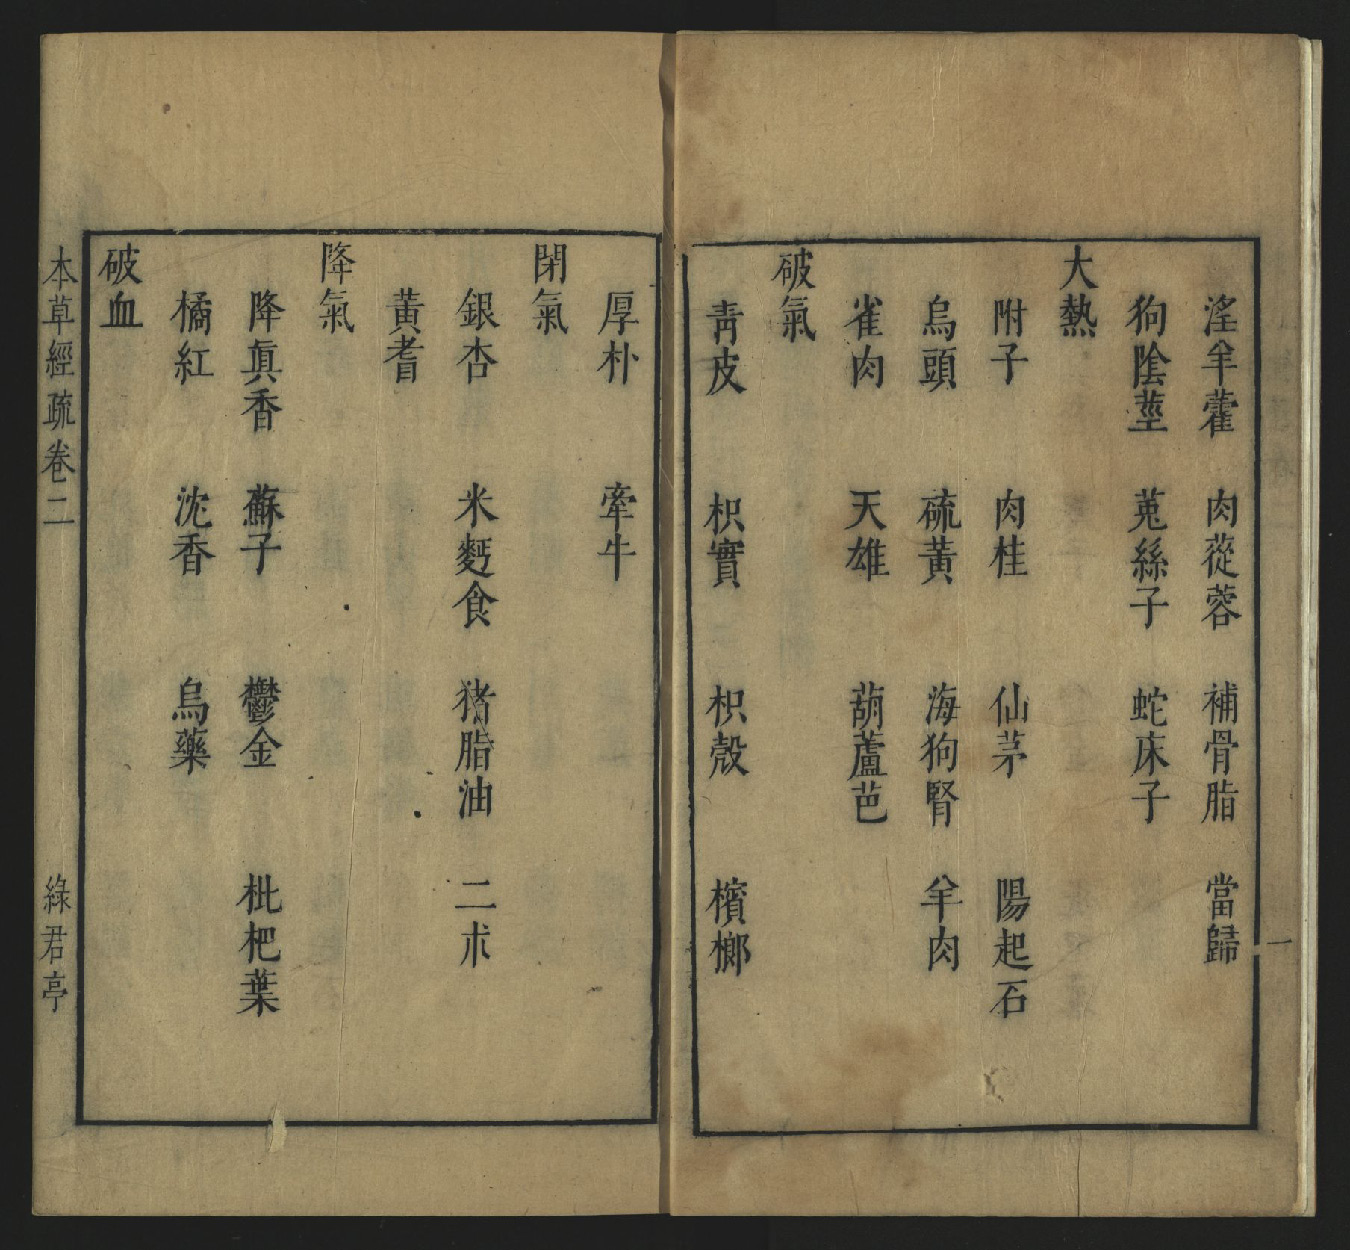 淫羊藿 肉蓯蓉 補骨脂 當歸
狗陰莖 菟絲子 蛇床子
大熱
附子 肉桂 仙茅 陽起石
烏頭 硫黃 海狗腎 羊肉
雀肉 天雄 葫蘆芭
破氣
靑皮 枳實 枳殻 檳榔
厚朴 牽牛
閉氣
銀杏 米麫食 猪脂油 二朮
黃耆
降氣
降眞香 蘇子 鬱金 枇杷葉
橘紅 沈香 烏藥
破血
本草經疏卷二 綠君亭
一